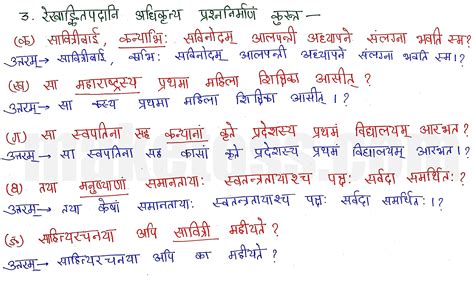 3. रेखाङ्कितपदानि अधिकृत्य प्रश्ननिर्माणं कुरुत —
(क) सावित्रीबाई, कन्याभिः सविनोदम् आलपन्ती अध्यापने संलग्ना भवति स्म।?
उत्तरम् → सावित्रीबाई, काभिः सविनोदम् आलपन्ती अध्यापने संलग्ना भवति स्म।?
(ख) सा महाराष्ट्रस्य प्रथमा महिला शिक्षिका आसीत्।?
उत्तरम् → सा कस्य प्रथमा महिला शिक्षिका आसीत्।?
(ग) सा स्वपतिना सह कन्यानां कृते प्रदेशस्य प्रथमं विद्यालयम् आरभत।?
उत्तरम् → सा स्वपतिना सह कासां कृते प्रदेशस्य प्रथमं विद्यालयम् आरभत।?
(घ) तया मनुष्याणां समानतायाः स्वतन्त्रतायाश्च पक्षः सर्वदा समर्थितः।?
उत्तरम् → तया केषां समानतायाः स्वतन्त्रतायाश्च पक्षः सर्वदा समर्थितः।?
(ङ) साहित्यरचनया अपि सावित्री महीयते।?
उत्तरम् → साहित्यरचनया अपि का महीयते?